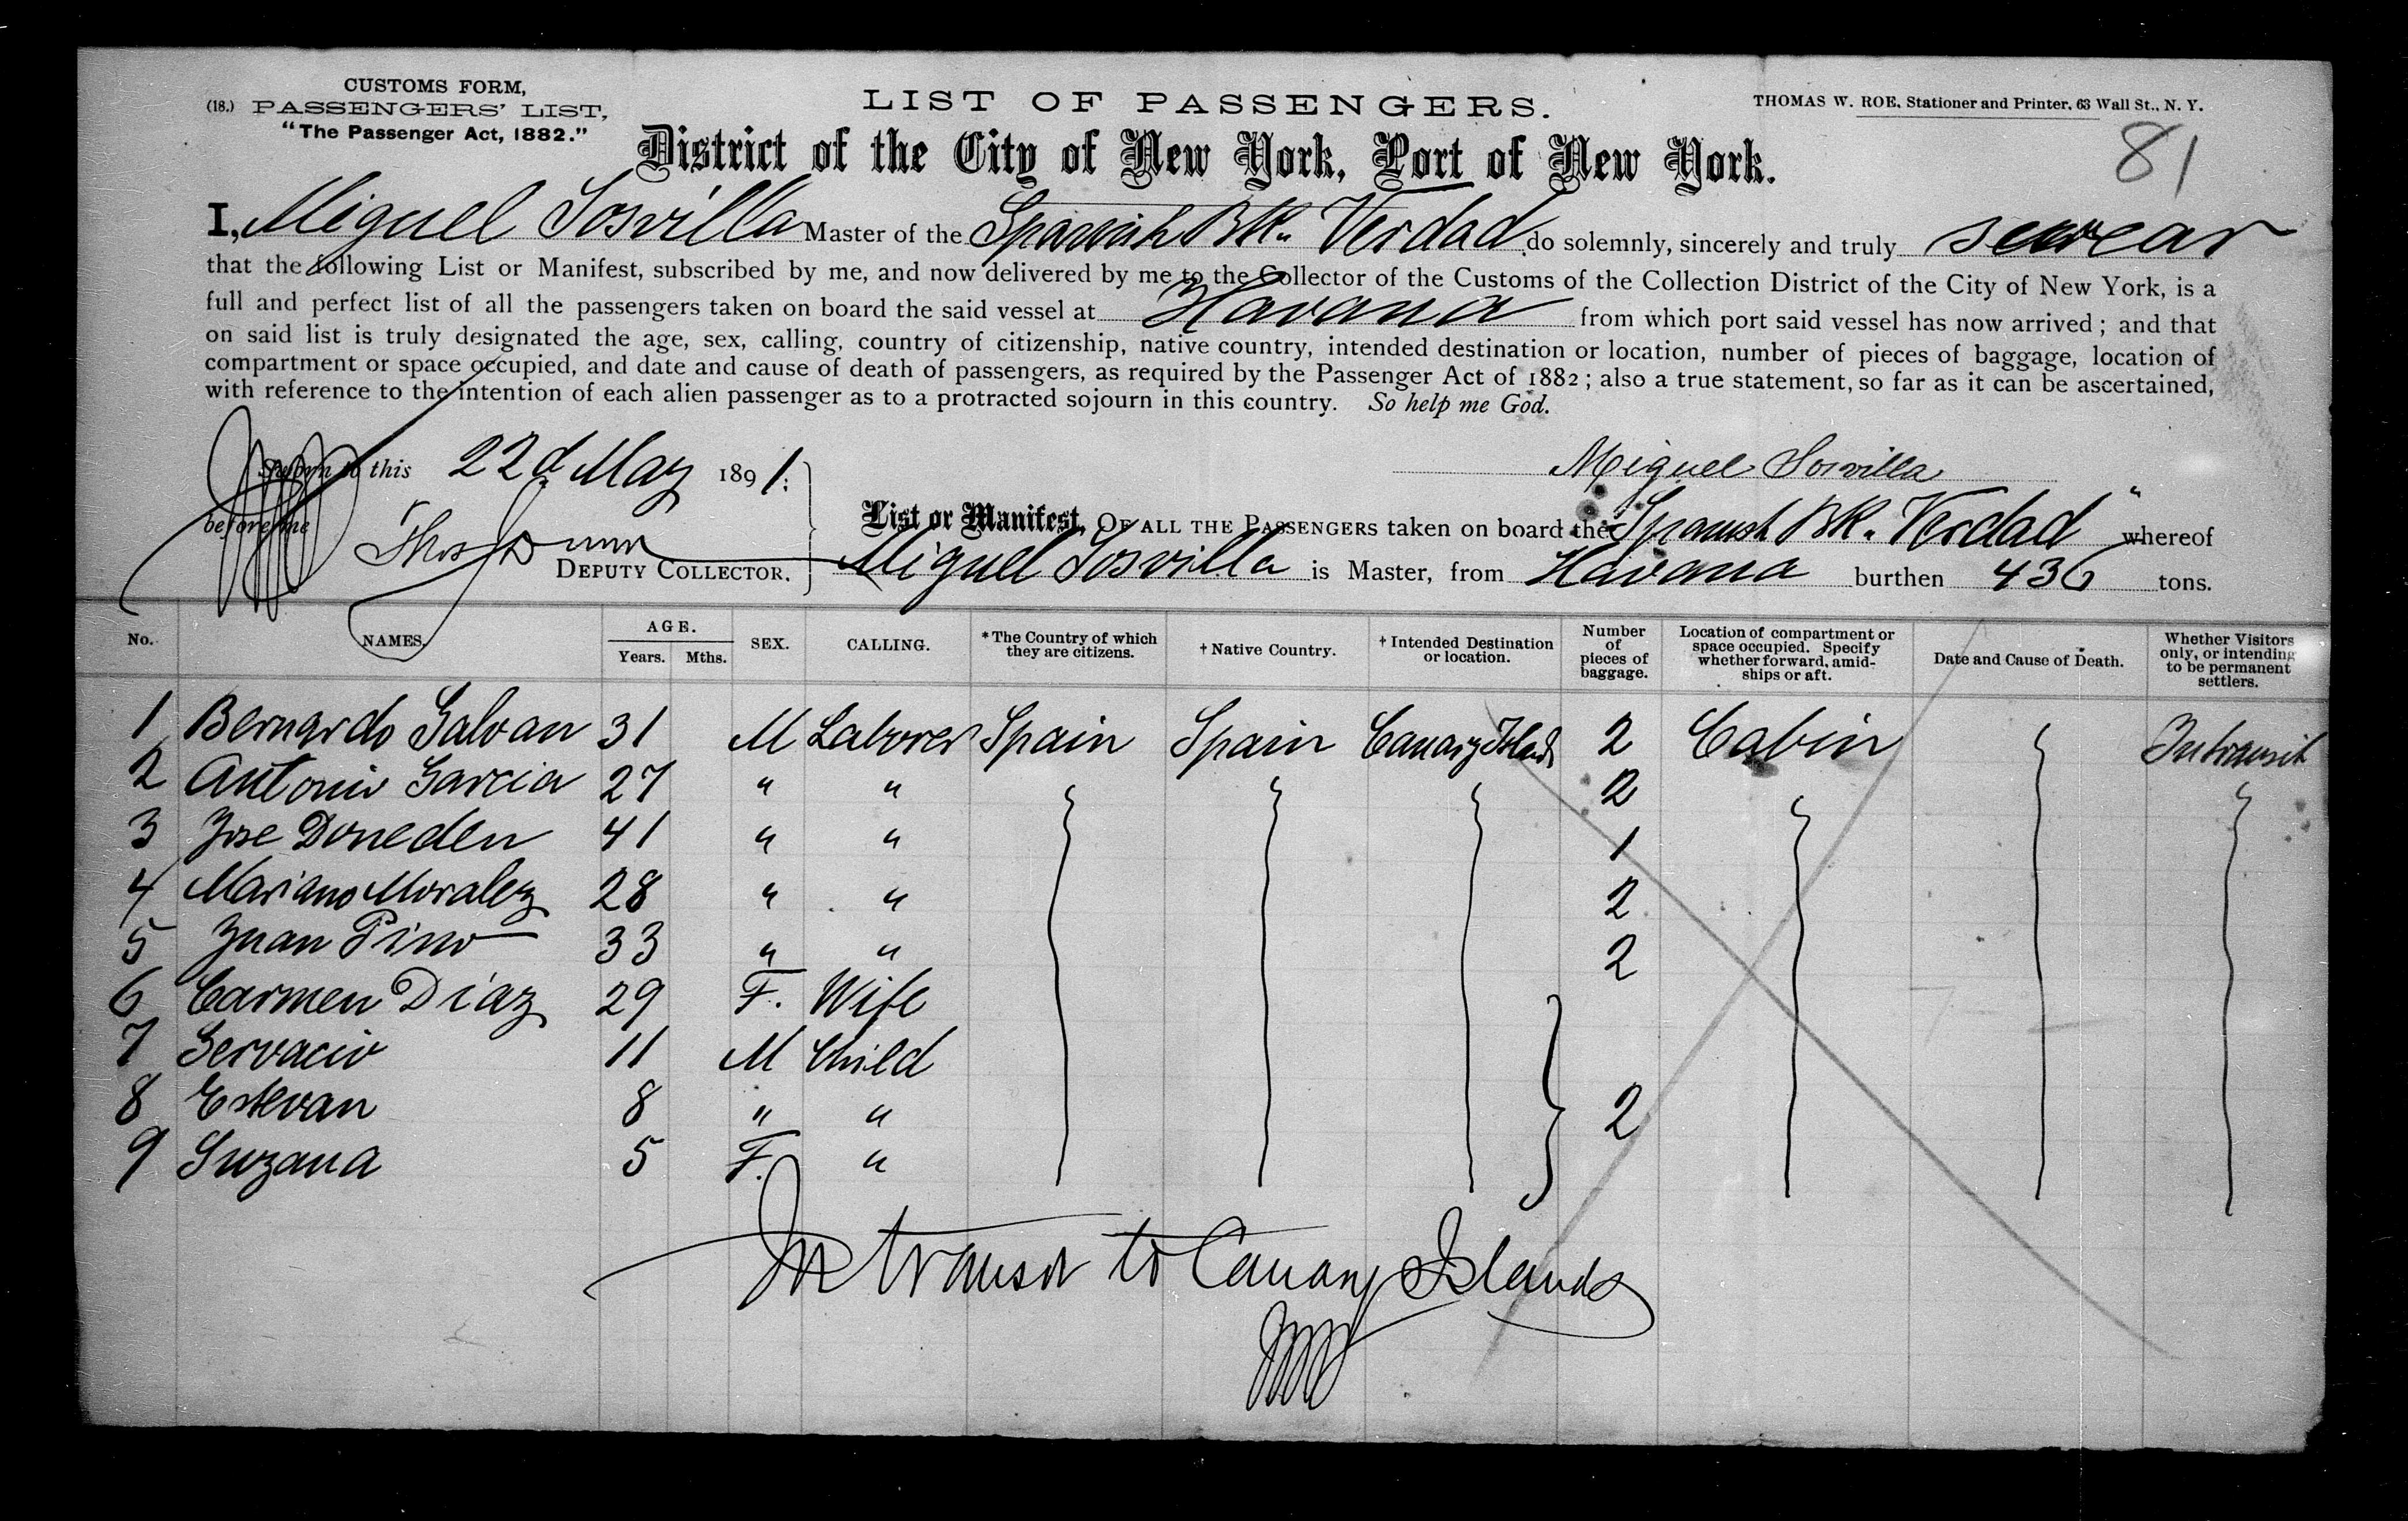 CUSTOMS FORM,
(18.) PASSENGERS' LIST,
"The Passenger Act, 1882."
LIST OF PASSENGERS.
THOMAS W. ROE, Stationer and Printer, 63 Wall St., N. Y.
81
District of the City of New York, Port of New York.
I, Miguel Sosvilla Master of the Spanish Bk. Verdad do solemnly, sincerely and truly swear
that the following List or Manifest, subscribed by me, and now delivered by me to the Collector of the Customs of the Collection District of the City of New York, is a
full and perfect list of all the passengers taken on board the said vessel at Havana from which port said vessel has now arrived; and that
on said list is truly designated the age, sex, calling, country of citizenship, native country, intended destination or location, number of pieces of baggage, location of
compartment or space occupied, and date and cause of death of passengers, as required by the Passenger Act of 1882; also a true statement, so far as it can be ascertained,
with reference to the intention of each alien passenger as to a protracted sojourn in this country. So help me God.
Sworn to this 22d May 1891.
Miguel Sosvilla
before me
Thos Dunn
DEPUTY COLLECTOR.
List or Manifest, OF ALL THE PASSENGERS taken on board the Spanish Bk. Verdad" whereof
Miguel Sosvilla is Master, from Havana burthen 436 tons.
No. NAMES. AGE. Years. Mths. SEX. CALLING. *The Country of which they are citizens. †Native Country. †Intended Destination or location. Number of pieces of baggage. Location of compartment or space occupied. Specify whether forward, amidships or aft. Date and Cause of Death. Whether Visitors only, or intending to be permanent settlers.
1 Bernardo Galvan 31 M Laborer Spain Spain Canary Islands 2 Cabin In transit
2 Antonio Garcia 27 " " 2
3 Jose Doneden 41 " " 1
4 Mariano Moralez 28 " " 2
5 Juan Pino 33 " " 2
6 Carmen Diaz 29 F. Wife
7 Gervacio 11 M Child
8 Estevan 8 " " 2
9 Suzana 5 F. "
In transit to Canary Islands